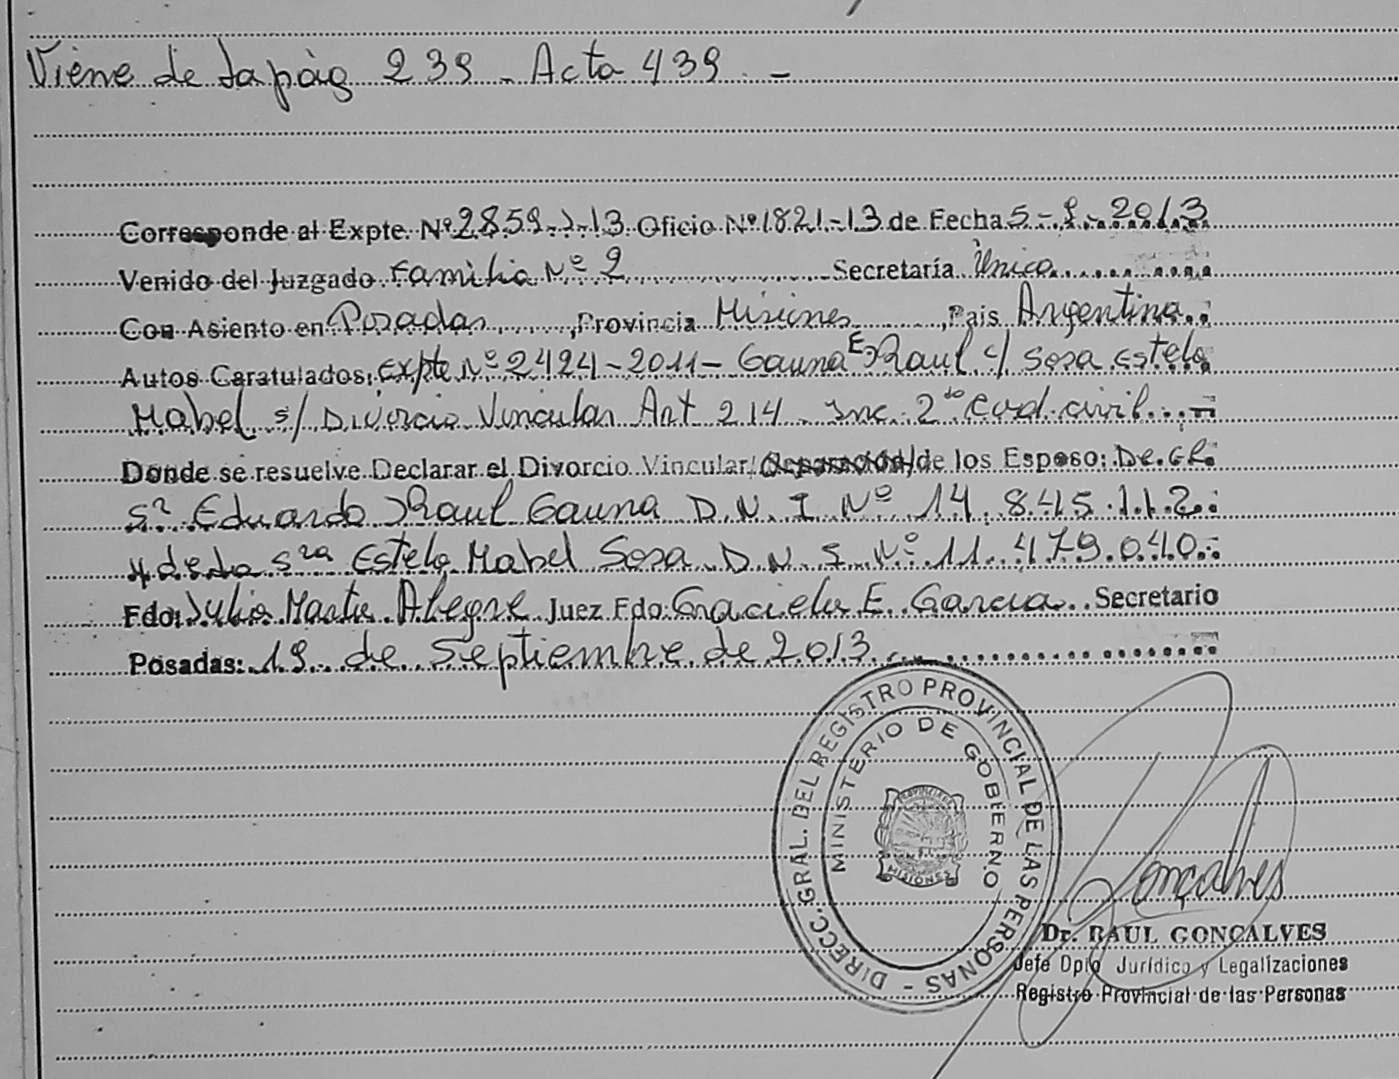 Viene de la pág 239 - Acta 439 -
Corresponde al Expte. Nº 2859-J-13 Oficio Nº 1821-13 de Fecha 5-9-2013
Venido del Juzgado Familia Nº 2 Secretaría Única
Con Asiento en Posadas, Provincia Misiones, Pais Argentina
Autos Caratulados: Expte Nº 2424-2011- Gauna E. Raul c/ Sosa Estela
Mabel s/ Divorcio Vincular Art 214 Inc. 2do Cod. civil
Donde se resuelve Declarar el Divorcio Vincular/ /de los Esposo:
Sr Eduardo Raul Gauna D.N.I Nº 14.845.112
y de la Sra Estela Mabel Sosa D.N.I. Nº 11.479.040
Fdo: Julio Martin Alegre Juez Fdo: Graciela E. Garcia Secretario
Posadas: 19 de Septiembre de 2013
DIRECC. GRAL. DEL REGISTRO PROVINCIAL DE LAS PERSONAS -
MINISTERIO DE GOBIERNO
MISIONES
Gonçalves
Dr. RAUL GONÇALVES
Jefe Dpto Jurídico y Legalizaciones
Registro Provincial de las Personas